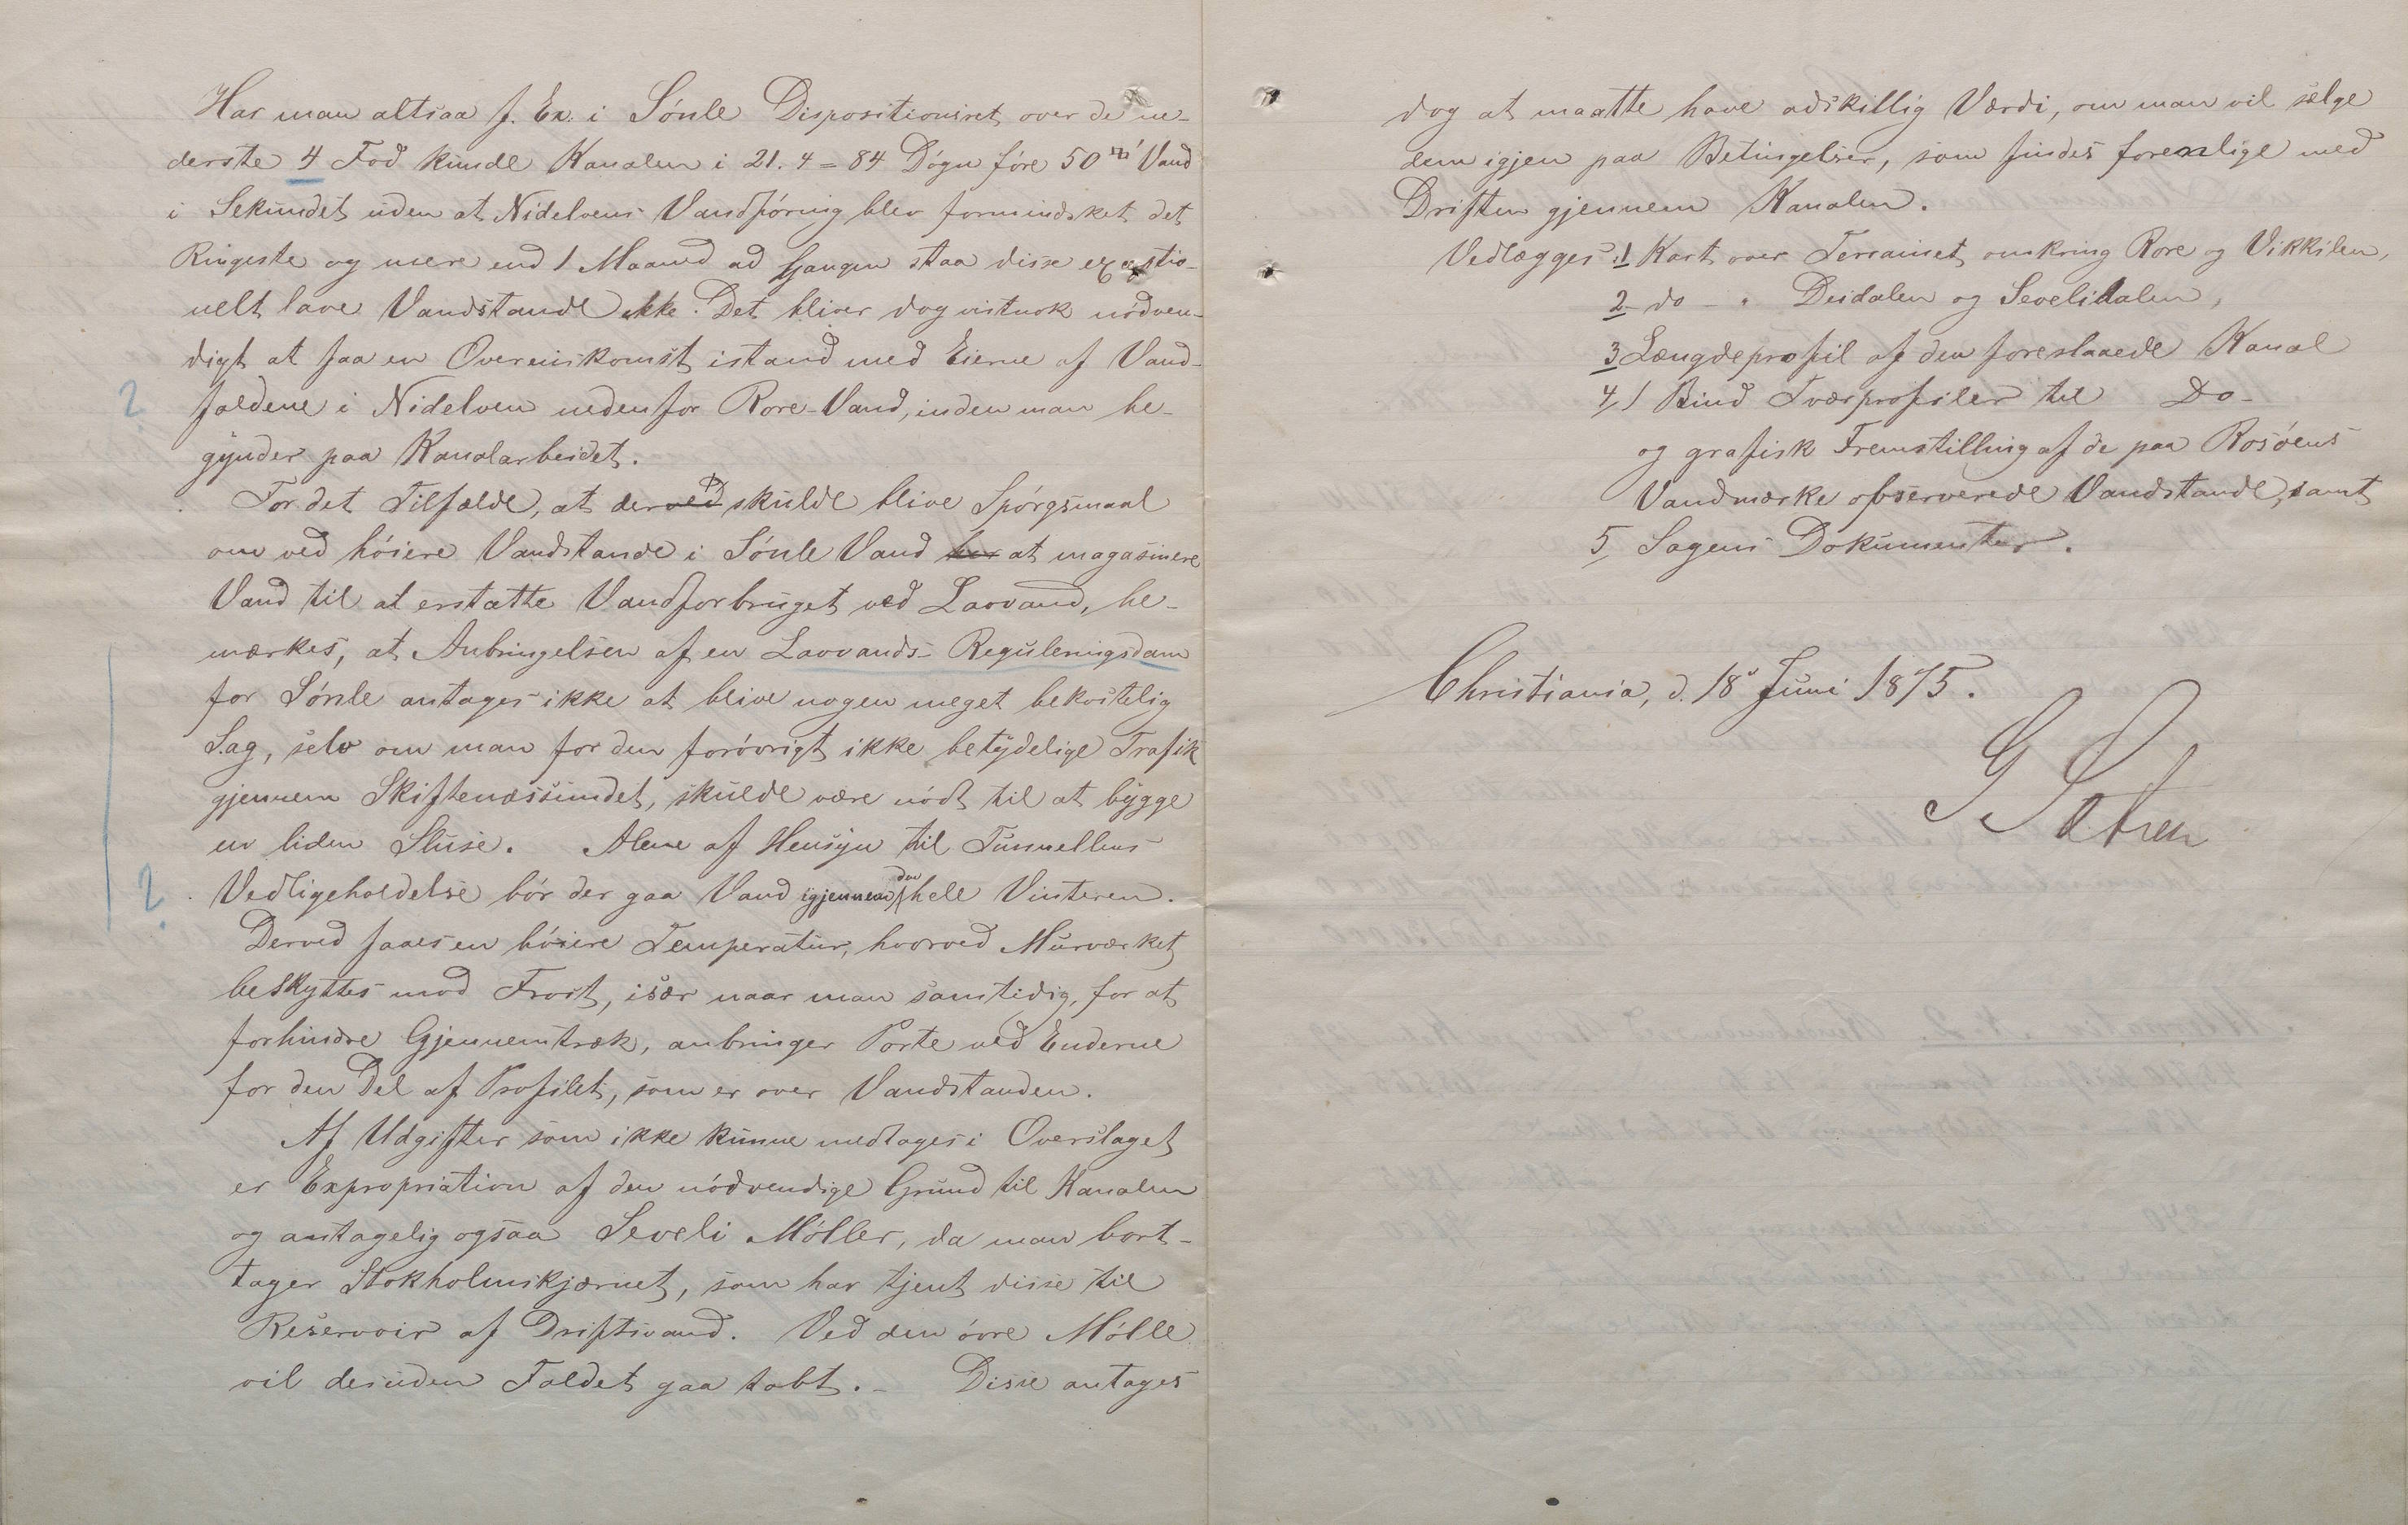 Har man altsaa f. Ex. i Sönle Dispositionsret over de ne-
derste 4 Fod kunde Kanalen i 21. 4 = 84 Dógn före 50 Vand
i Sekundet uden at Nidelvens Vandföring blev formindsket det
Ringeste og mere end 1 Maaned ad Gangen staa disse exceptio-
nelt lave Vandstande ikke. Det bliver dog vistnok nödven-
digt at faa en Overenskomst istand med Eierne af Vand-
? faldene i Nidelven nedenfor Rore-Vand, inden man be-
gynder paa Kanalarbeidet.
For det Tilfælde, at der ved skulde blive Spörgsmaal
om ved höiere Vandstande i Sönle Vand her at magasinere
Vand til at erstatte Vandforbruget ved Lavvand, be-
mærkes, at Anbringelsen af en Lavvands-Reguleringsdam
for Sönle antages ikke at blive nogen meget bekostelig
Sag, selv om man for den forövrigt ikke betydelige Trafik
gjennem Skiftenæssundet, skulde være nödt til at bygge
en liden Sluse. Alene af Hensyn til Tunnellens
? Vedligeholdelse bör der gaa Vand igjennem den hele Vinteren.
Derved faaes en höiere Temperatur, hvorved Murværket
beskyttes mod Frost, især naar man samtidig, for at
forhindre Gjennemtræk, anbringer Porte ved Enderne
for den Del af Profilet, som er over Vandstanden.
Af Udgifter som ikke kunne medtages i Overslaget
er Expropriation af den nödvendige Grund til Kanalen
og antagelig ogsaa Seveli Möller, da man bort-
tager Stokholmskjærnet, som har tjent disse til
Reservoir af Driftsvand. Ved den övre Mölle
vil desuden Faldet gaa tabt. - Disse antages
dog at maatte have adskillig Værdi, om man vil sælge
dem igjen paa Betingelser, som findes forenlige med
Driften gjennem Kanalen.
Vedlægges: 1 Kart over Terrainet omkring Rore og Vikkilen,
2 do - " Deidalen og Sevelidalen,
3 Længdeprofil af den foreslaaede Kanal
4, 1 Bind Tværprofiler til Do-
og grafisk Fremstilling af de paa Rosöens
Vandmærke observerede Vandstande, samt
5, Sagens Dokumenter.
Christiania, d. 18 Juni 1875.
G Sætren